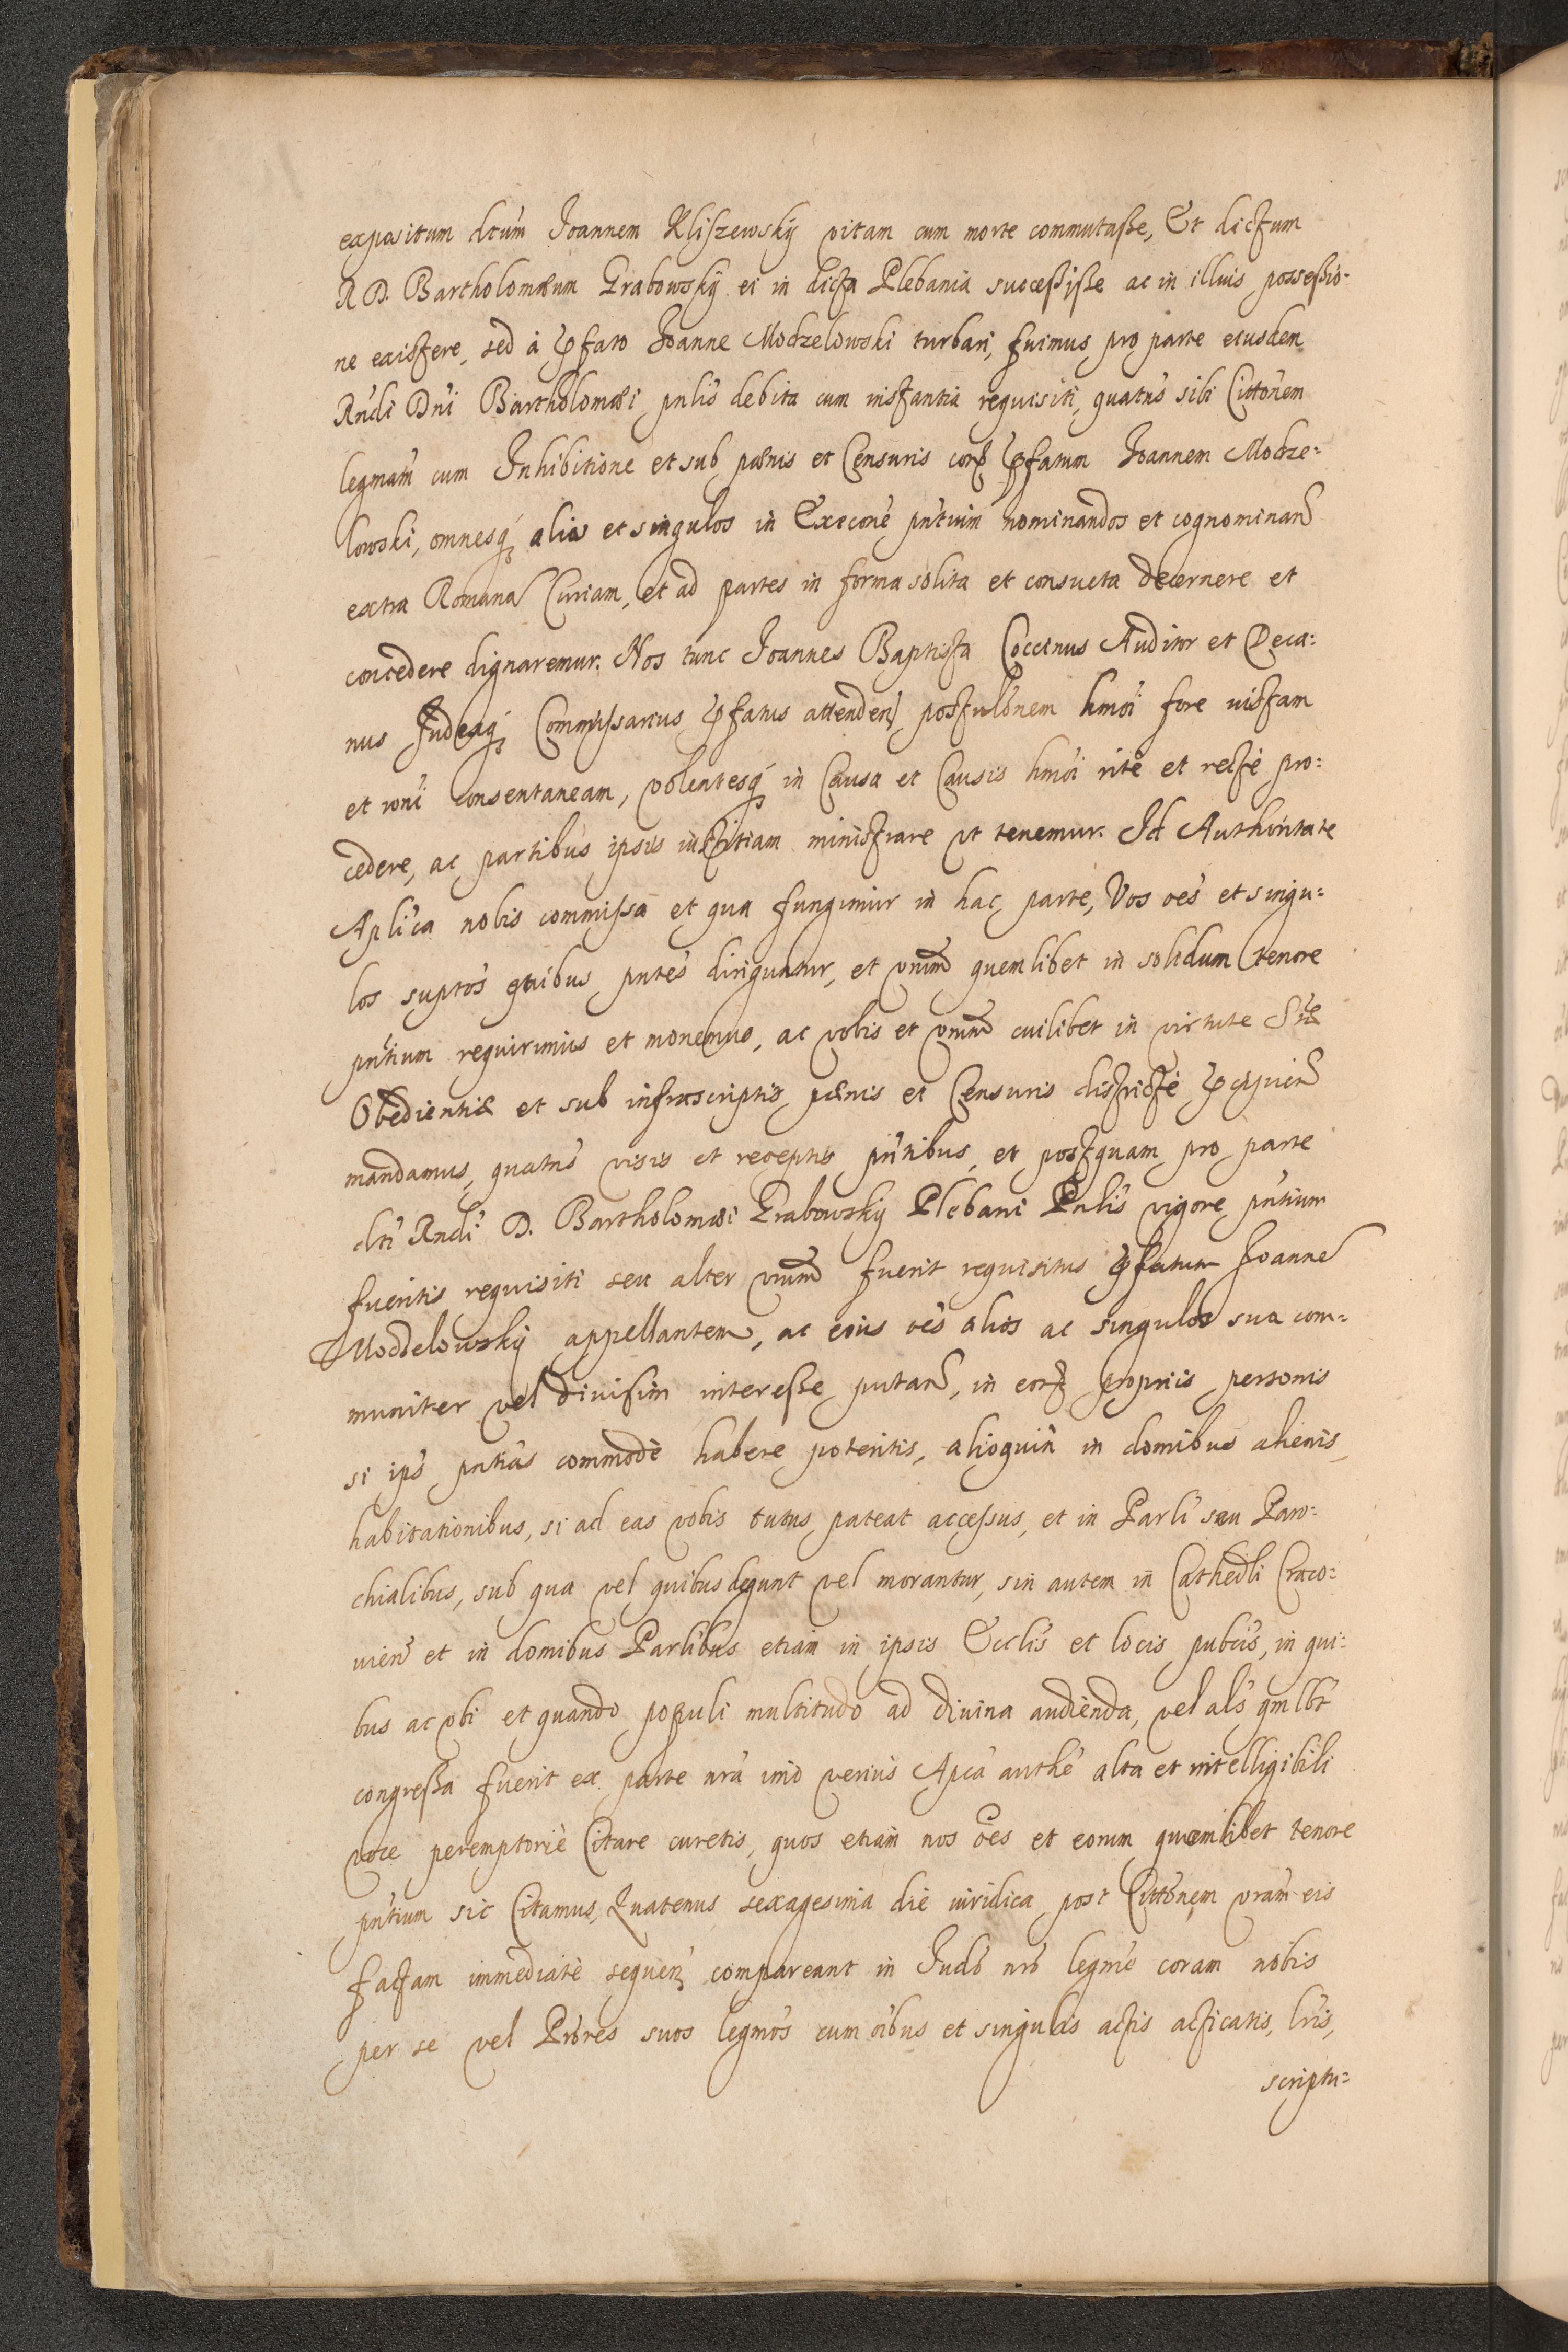 expositum dtum Joannem Kliszewsky vitam cum morte commutasse, Et dictum
R D. Bartholomæum Grabowskÿ ei in dicta Plebania successisse ac in illius possessio-
ne existere, sed à pfato Joanne Modzelowski turbari, fuimus pro parte eiusdem
Rndi Dni Bartholomæi pnlis debita cum instantia requisiti, quatns sibi Cittonem
legmam cum Inhibitione et sub pœnis et Censuris cons pfatum Joannem Modze=
lowski, omnesq alios et singulos in Execone pntium nominandos et cognominan
extra Romana Curiam, et ad partes in forma solita et consueta decernere et
concedere dignaremur. Nos tunc Joannes Baptista Coccinus Auditor et Deca:
nus Judexq Commissarius pfatus attenden postulonem hmoi fore iustam
et roni consentaneam, volentesq in Causa et Causis hmoi ritè et rectè pro:
cedere, ac partibus ipsis iustitiam ministrare vt tenemur. Id Authoritate
Aplica nobis commissa et qua fungimur in hac parte, Vos oes et singu=
los suptos quibus pntes diriguntur, et vrum quemlibet in solidum tenore
pntium requirimus et monemus, ac vobis et vrum cuilibet in virtute Stæ
Obedientiæ et sub infrascriptis pœnis et Censuris districtè pcipien
mandamus, quatns visis et receptis pntibus, et postquam pro parte
dti Rndi D. Bartholomæi Grabowsky Plebani Pnlis vigore pntium
fueritis requisiti seu alter vrum fuerit requisitus pfatum Joanne
Modzelowskÿ appellantem, ac eius oes alios ac singulos sua com=
muniter vel diuisim interesse putan, in eor propriis personis
si ips pntias commodè habere poteritis, alioquin in domibus alienis,
habitationibus, si ad eas vobis tutus pateat accessus, et in Parli seu Paro=
chialibus, sub qua vel quibus degunt vel morantur, sin autem in Cathedli Craco=
uien et in domibus Parlibus etiam in ipsis Ecclis et locis publis, in qui=
bus ac vbi et quando populi multitudo ad diuina audienda, vel als qmlbt
congressa fuerit ex parte nra imò verius Apca authe alta et intelligibili
voce peremptoriè Citare curetis, quos etiam nos oes et eorum quemlibet tenore
pntium sic Citamus, Quatenus sexagesima die iuridica post Cittonem vram eis
factam immediatè sequen compareant in Judo nro legme coram nobis
per se vel Prores suos legmos cum oibus et singulis actis acticatis, lris,
scriptu=